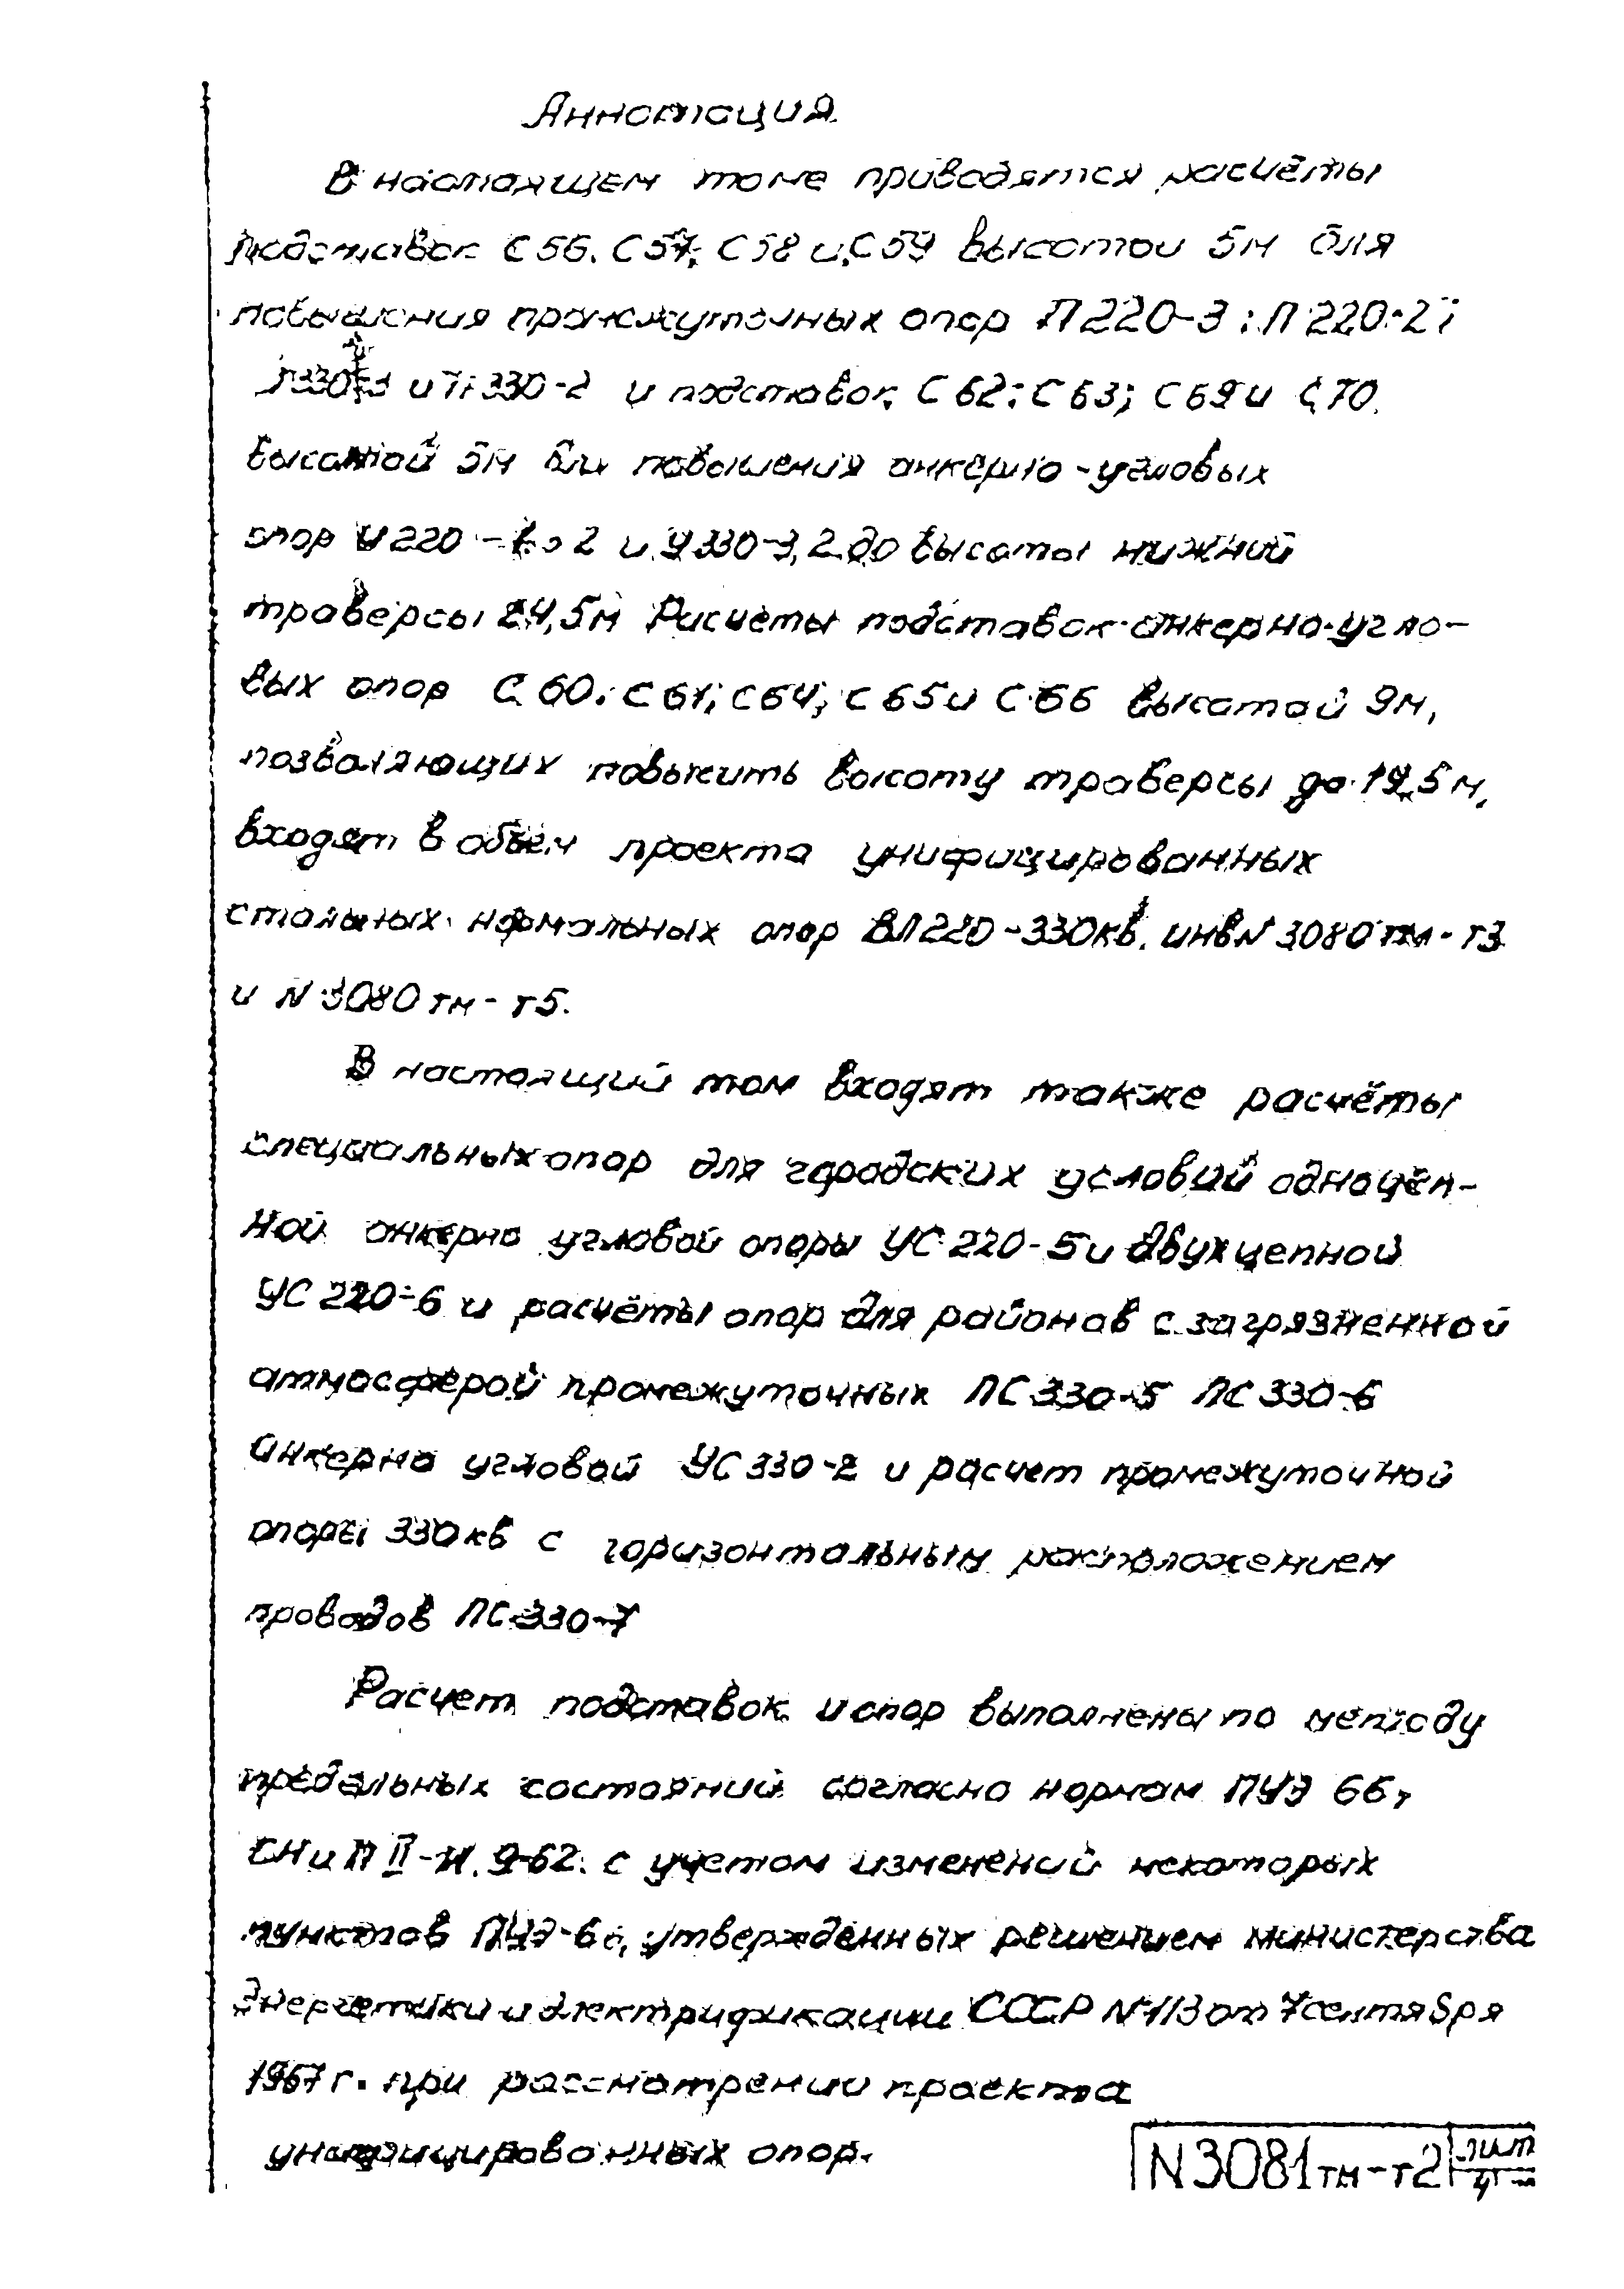 Аннотация
В настоящем томе приводятся расчёты
подставок С56. С57; С58 и С59 высотой 5м для
повышения промежуточных опор П220-3; П220-2;
П330-3 и П330-2 и подставок С62; С63; С69 и С70.
высотой 5м для повышения анкерно-угловых
опор У220 - 2 и У330-3,2 до высоты нижний
траверсы 24,5м Расчеты подставок анкерно-угло-
вых опор С60; С61; С64; С65 и С66 высотой 9м,
позволяющих повысить высоту траверсы до 19,5м,
входят в объем проекта унифицированных
стальных нормальных опор ВЛ220-330кв. инв N 3080тм-т3
и N 3080тм-т5.
В настоящий том входят также расчёты
специальных опор для городских условий одноцеп-
ной анкерно угловой опоры УС220-5 и двухцепной
УС220-6 и расчёты опор для районов с загрязненной
атмосферой промежуточных ПС330-5 ПС330-6
анкерно угловой УС330-2 и расчет промежуточной
опоры 330кв с горизонтальным расположением
проводов ПС330-7
Расчет подставок и опор выполнены по методу
предельных состояний согласно нормам ПУЭ 66,
СНиП II-И.9-62. с учетом изменений некоторых
пунктов ПУЭ-66, утвержденных решением министерства
Энергетики и электрификации СССР N113 от 7 сентября
1967г. при рассмотрении проекта
унифицированных опор.
N3081тм-т2 лит
4